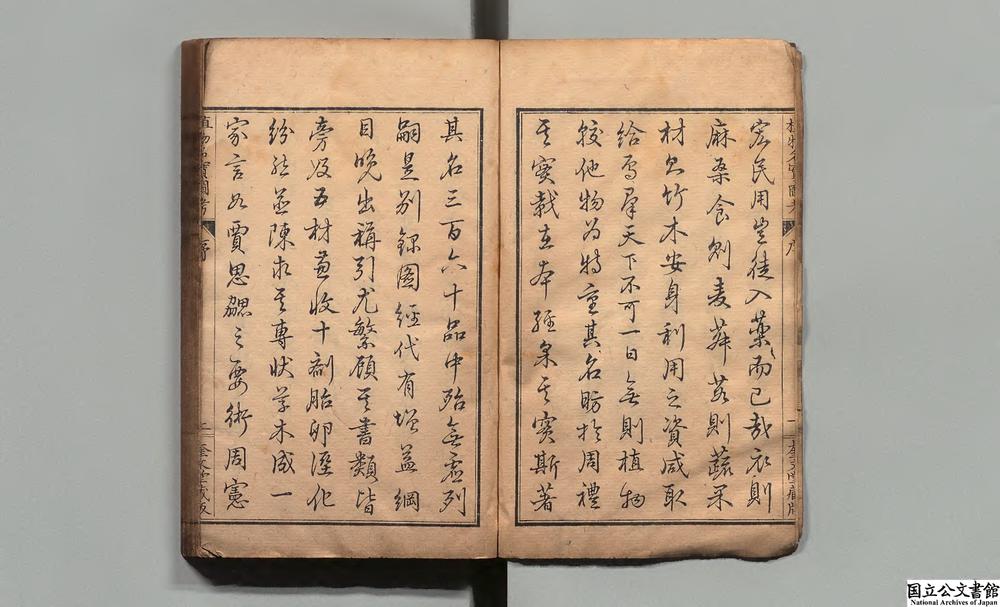 植物名實圖考 序
奎文堂藏版
宏民用豈徒入藥而已哉衣則
麻桑食則麦菽茹則蔬果
材則竹木安身利用之資咸取
給焉羣天下不可一日無則植物
較他物為特重其名昉於周禮
其實載在本經其實斯著
其名三百六十品中殆無虛列
嗣是別錄圖經代有增益綱
目晚出稱引尤繁顧其書類皆
旁及五材兼收十劑胎卵溼化
紛然並陳求其專狀草木成一
家言如賈思勰之要術周憲
植物名實圖考 序
奎文堂藏版
国立公文書館
National Archives of Japan